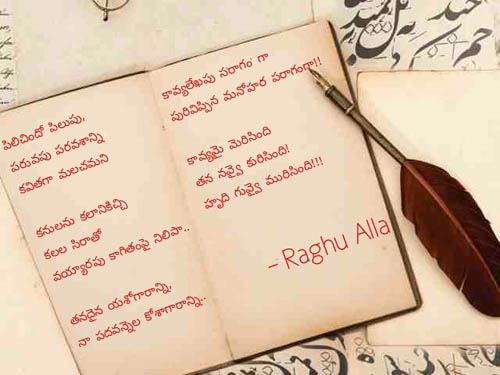 పిలిచిందో పిలుపు,
పరువపు పరవశాన్ని
కవితగా మలచమని
కనులను కలానికిచ్చి
కలల సిరాతో
వయ్యారపు కాగితంపై నిలిపా..
తనదైన యశోగారాన్ని,
నా పదవన్నెల కోశాగారాన్ని..
కావ్యలేఖపు సరాగం గా
పురివిప్పిన మనోహర పరాగంగా!!
కావ్యమై మెరిసింది
తన నవ్వై కురిసింది!
హృది గువ్వై మురిసింది!!!
- Raghu Alla